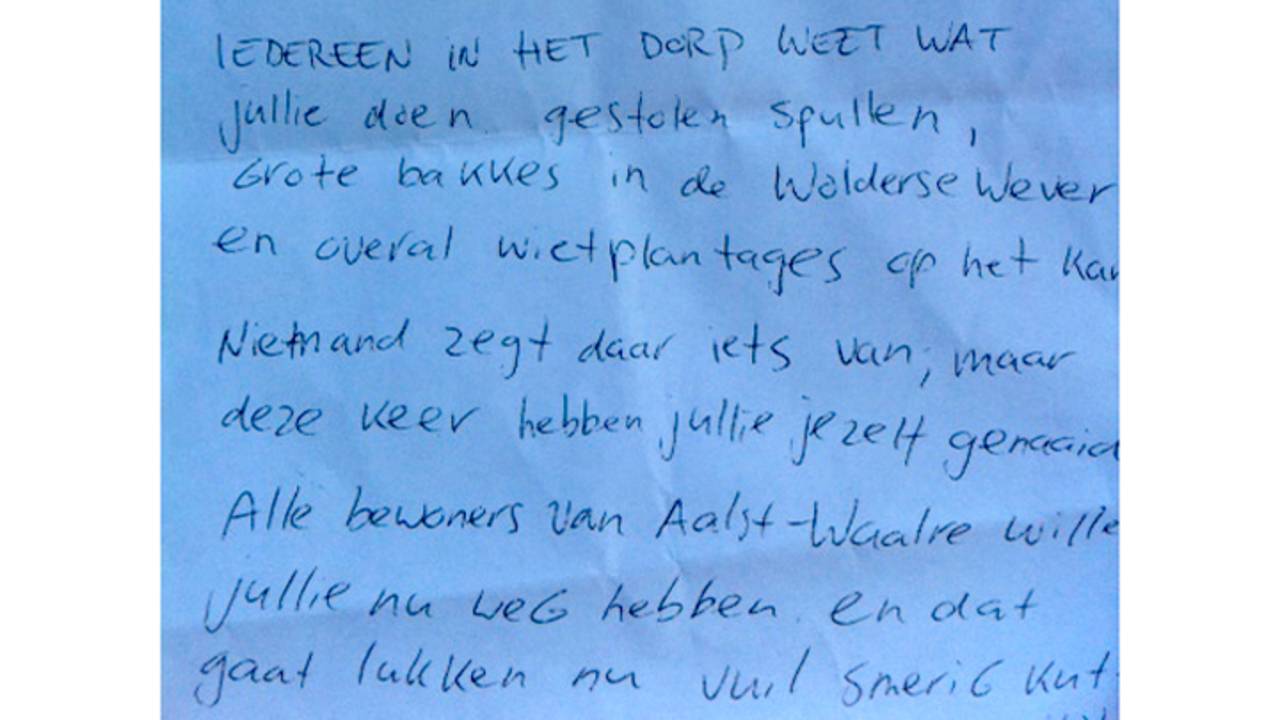 IEDEREEN IN HET DORP WEET WAT
jullie doen. gestolen spullen,
Grote bakkes in de Wolderse Wever
en overal wietplantages op het
Niemand zegt daar iets van; maar
deze keer hebben jullie jezelf genaaid
Alle bewoners van Aalst-Waalre wille
jullie nu weG hebben. en dat
gaat lukken nu vuil smeriG kut